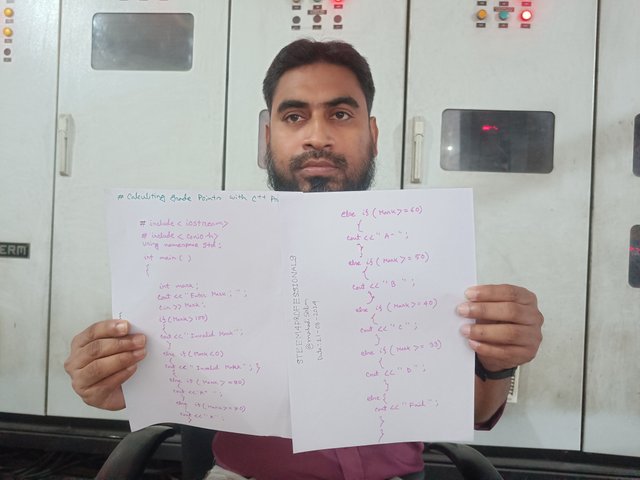 # Calculating Grade Points with C++ Pr
# include < iostream>
# include < conio.h>
using namespace std;
int main ( )
{
int mark;
cout << "Enter Mark : ";
cin >> Mark;
if (Mark > 100)
{
cout << "Invalid Mark";
}
else if (Mark < 0)
{
cout << "Invalid Mark" ; }
else if (Mark >= 80)
cout << "A+";
else if (Mark >= 70)
cout << "A";
else if (Mark >= 60)
{
cout << "A-" ;
}
else if (Mark >= 50)
{
cout << "B" ;
}
else if (Mark >= 40)
{
cout << "C" ;
}
else if (Mark >= 33)
{
cout << "D" ;
}
else {
cout << "Fail" ;
}
}
STEEM4PROFESSIONALS
Date: 21-05-2024
ERM